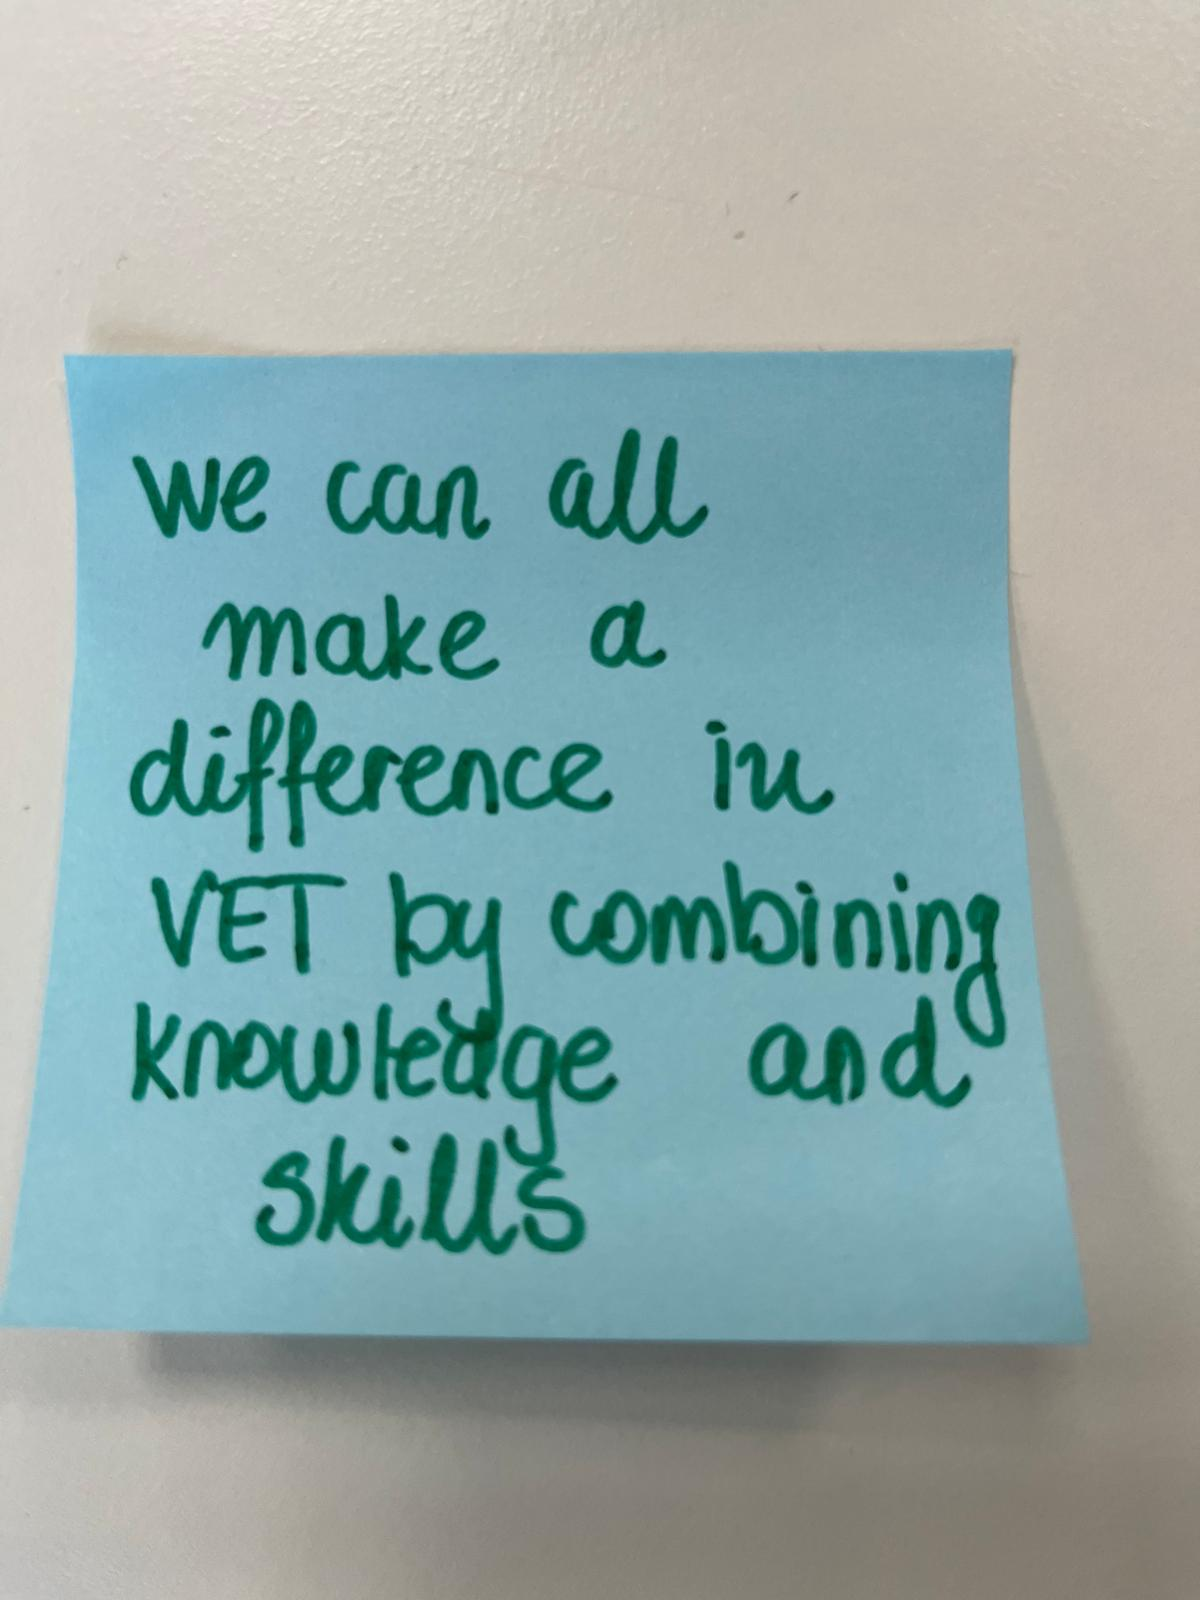 we can all
make a
difference in
VET by combining
knowledge and
skills